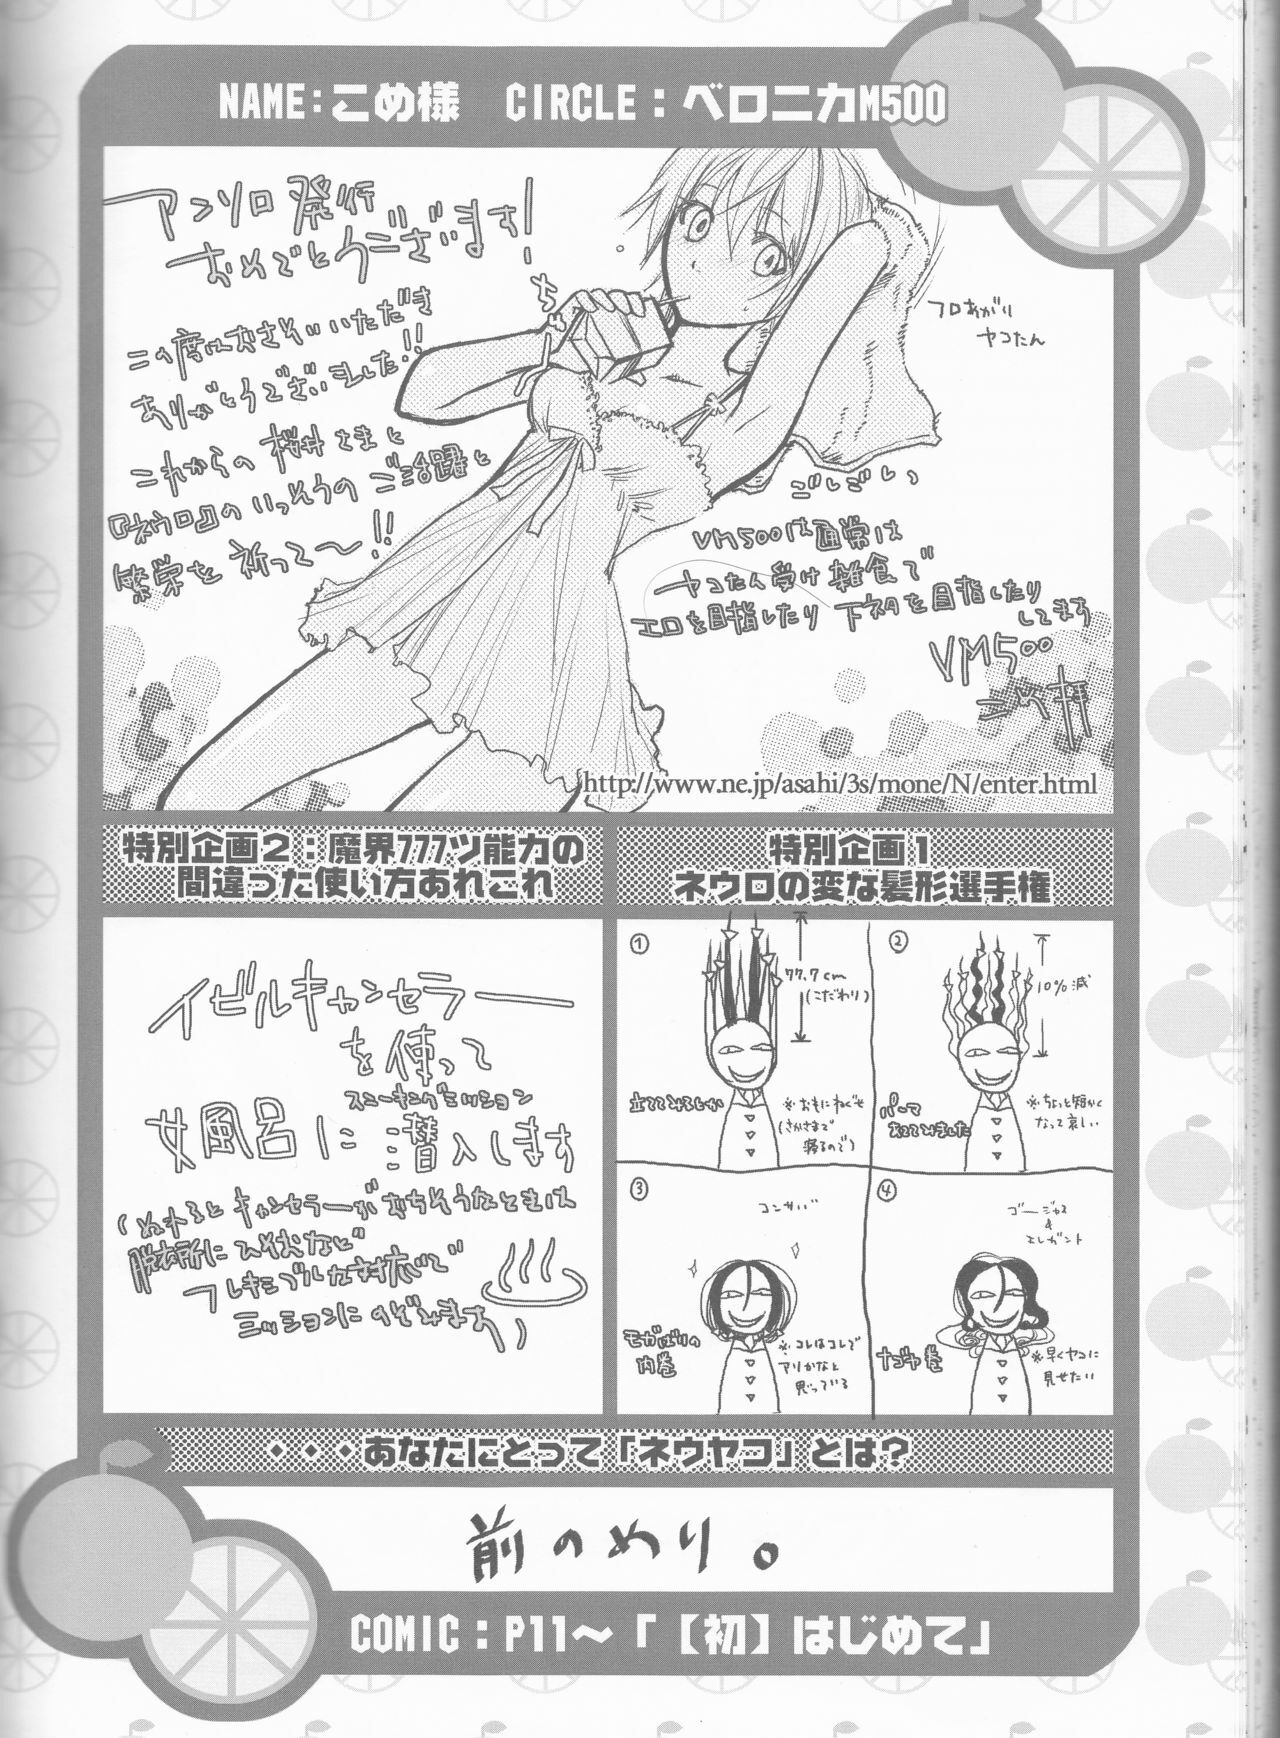 NAME:こめ様 CIRCLE:ベロニカM500
アンソロ発行
おめでとうございます!
この度はおさそいいただき
ありがとうございました!!
これからの桜井さまと
『ネウロ』のいっそうのご活躍と
繁栄を祈って〜!!
フロあがり
ヤコたん
ごしごしっ
VM500は通常は
ヤコたん受け雑食で
エロを目指したり下ネタを目指したり
してます
VM500
http://www.ne.jp/asahi/3s/mone/N/enter.html
特別企画2:魔界777ツ能力の
間違った使い方あれこれ
イビルキャンセラー
を使って
女風呂に潜入します
スニーキングミッション
(ぬれるとキャンセラーがおちそうなときは
脱衣所にひそむなど
フレキシブルな対応で
ミッションにのぞみます)
特別企画1
ネウロの変な髪形選手権
①
77.7cm
(こだわり)
立ててみるとか
※おもにねぐせ
(さかさまで
寝るので)
②
10%減
パーマ
あててみました
※ちょっと短かく
なって哀しい
③
コンサバ
モガばりの
内巻
※コレはコレで
アリかなと
思っている
④
ゴージャス
&
エレガント
ナゴヤ巻
※早くヤコに
見せたい
・・・あなたにとって「ネウヤコ」とは?
前のめり。
COMIC:P11〜「【初】はじめて」